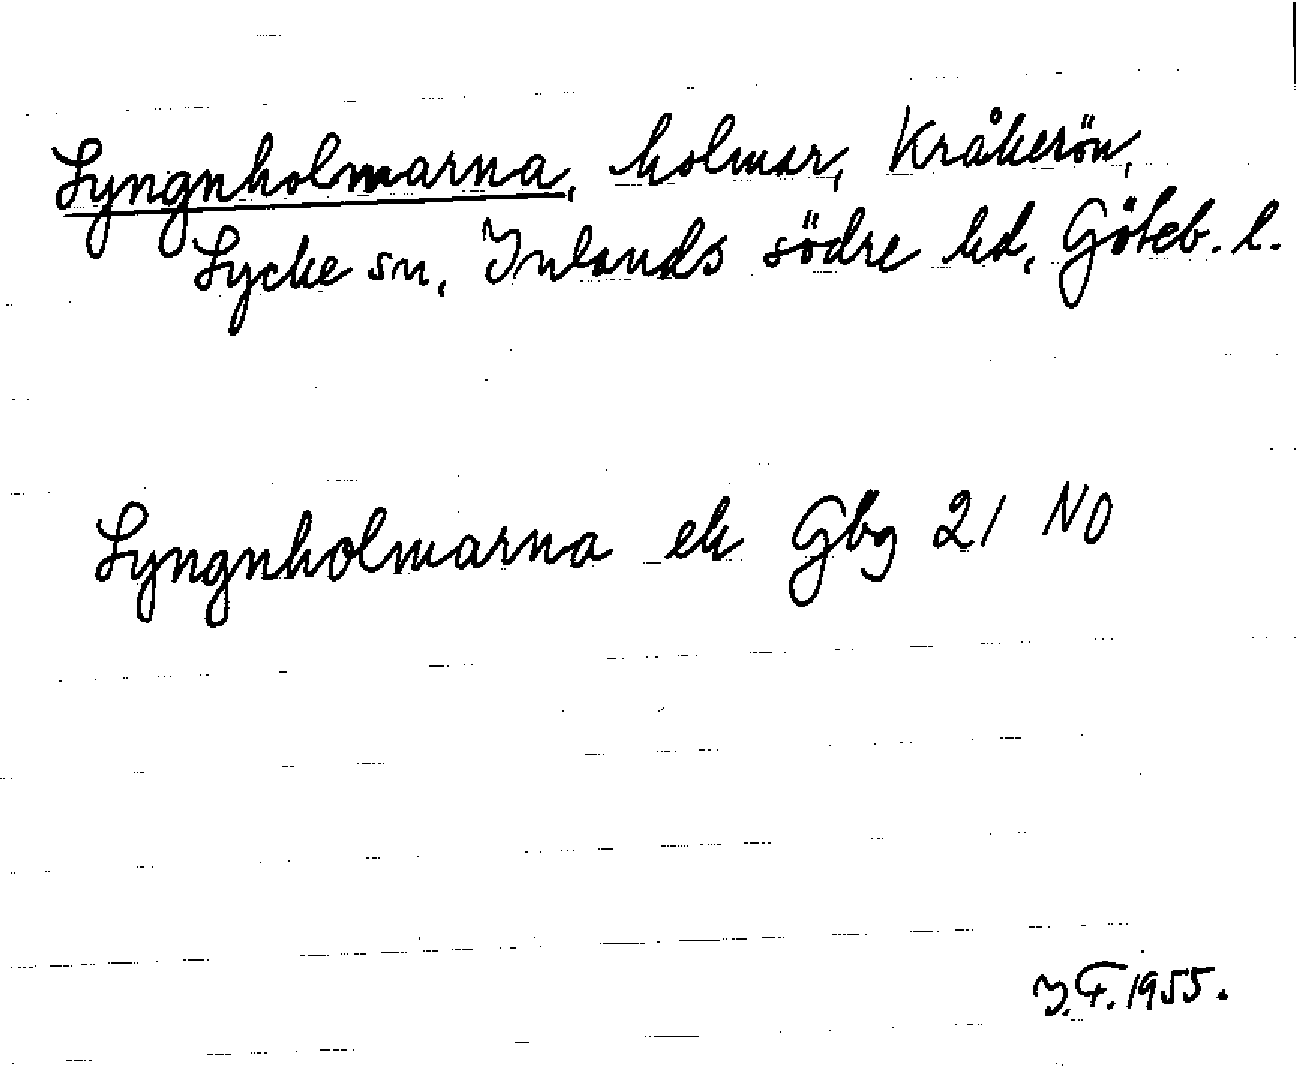 Lyngnholmarna, holmar, Kråkerön,
Lycke sn, Inlands södre hd, Göteb. l.
Lyngnholmarna ek Gbg 21 NO
I.F. 1955.